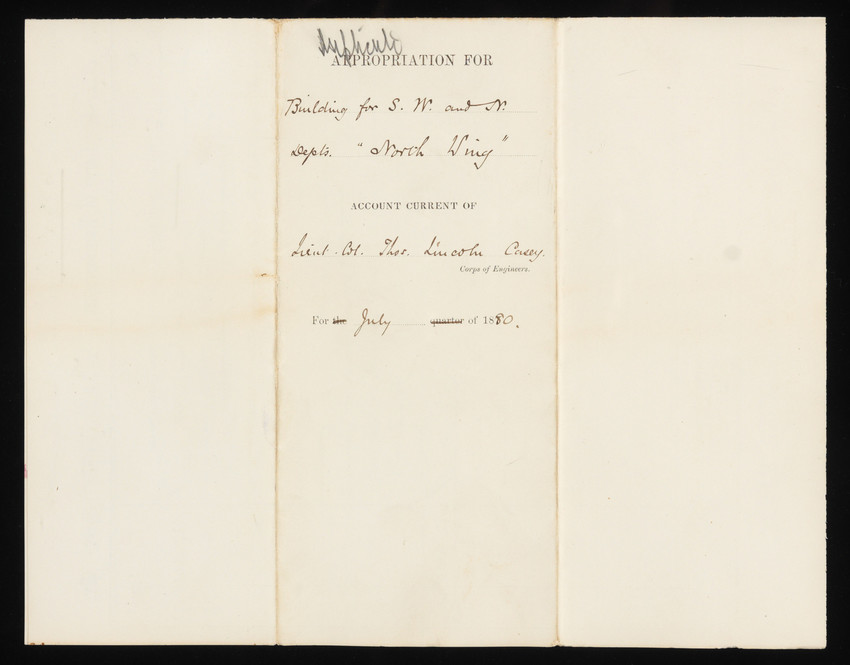 Duplicate
APPROPRIATION FOR
Building for S. W. and N.
Depts. "North Wing"
ACCOUNT CURRENT OF
Lieut. Col. Thos. Lincoln Casey.
Corps of Engineers.
For the July quarter of 1880.